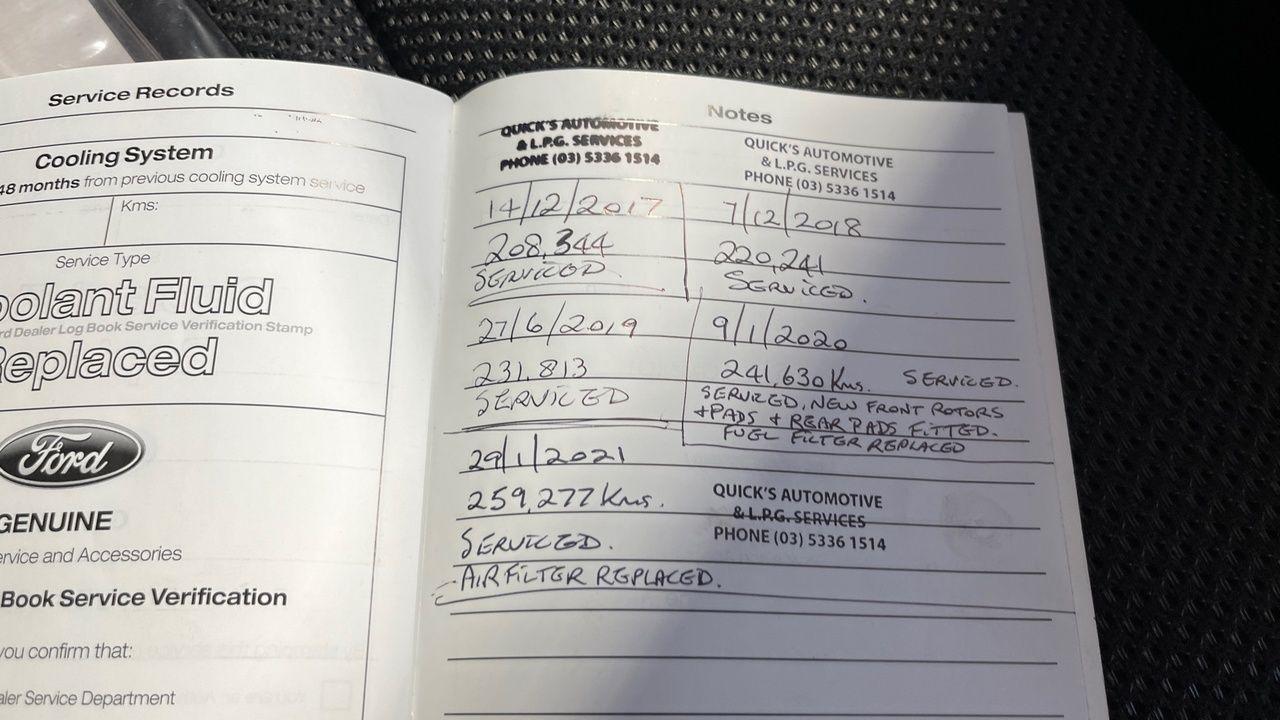 Service Records
Cooling System
48 months from previous cooling system service
Kms:
Service Type
Coolant Fluid
Ford Dealer Log Book Service Verification Stamp
Replaced
Ford
GENUINE
Service and Accessories
Book Service Verification
you confirm that:
Dealer Service Department
Notes
QUICK'S AUTOMOTIVE
& L.P.G. SERVICES
PHONE (03) 5336 1514
14/12/2017
208,344
SERVICED.
QUICK'S AUTOMOTIVE
& L.P.G. SERVICES
PHONE (03) 5336 1514
7/12/2018
220,241
SERVICED.
27/6/2019
231,813
SERVICED
9/1/2020
241,630 Kms. SERVICED.
SERVICED, NEW FRONT ROTORS
+ PADS + REAR PADS FITTED.
FUEL FILTER REPLACED
29/1/2021
259,277 Kms.
SERVICED.
AIR FILTER REPLACED.
QUICK'S AUTOMOTIVE
& L.P.G. SERVICES
PHONE (03) 5336 1514